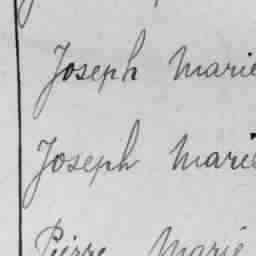 Joseph Marie
Joseph Marie
Pierre Marie